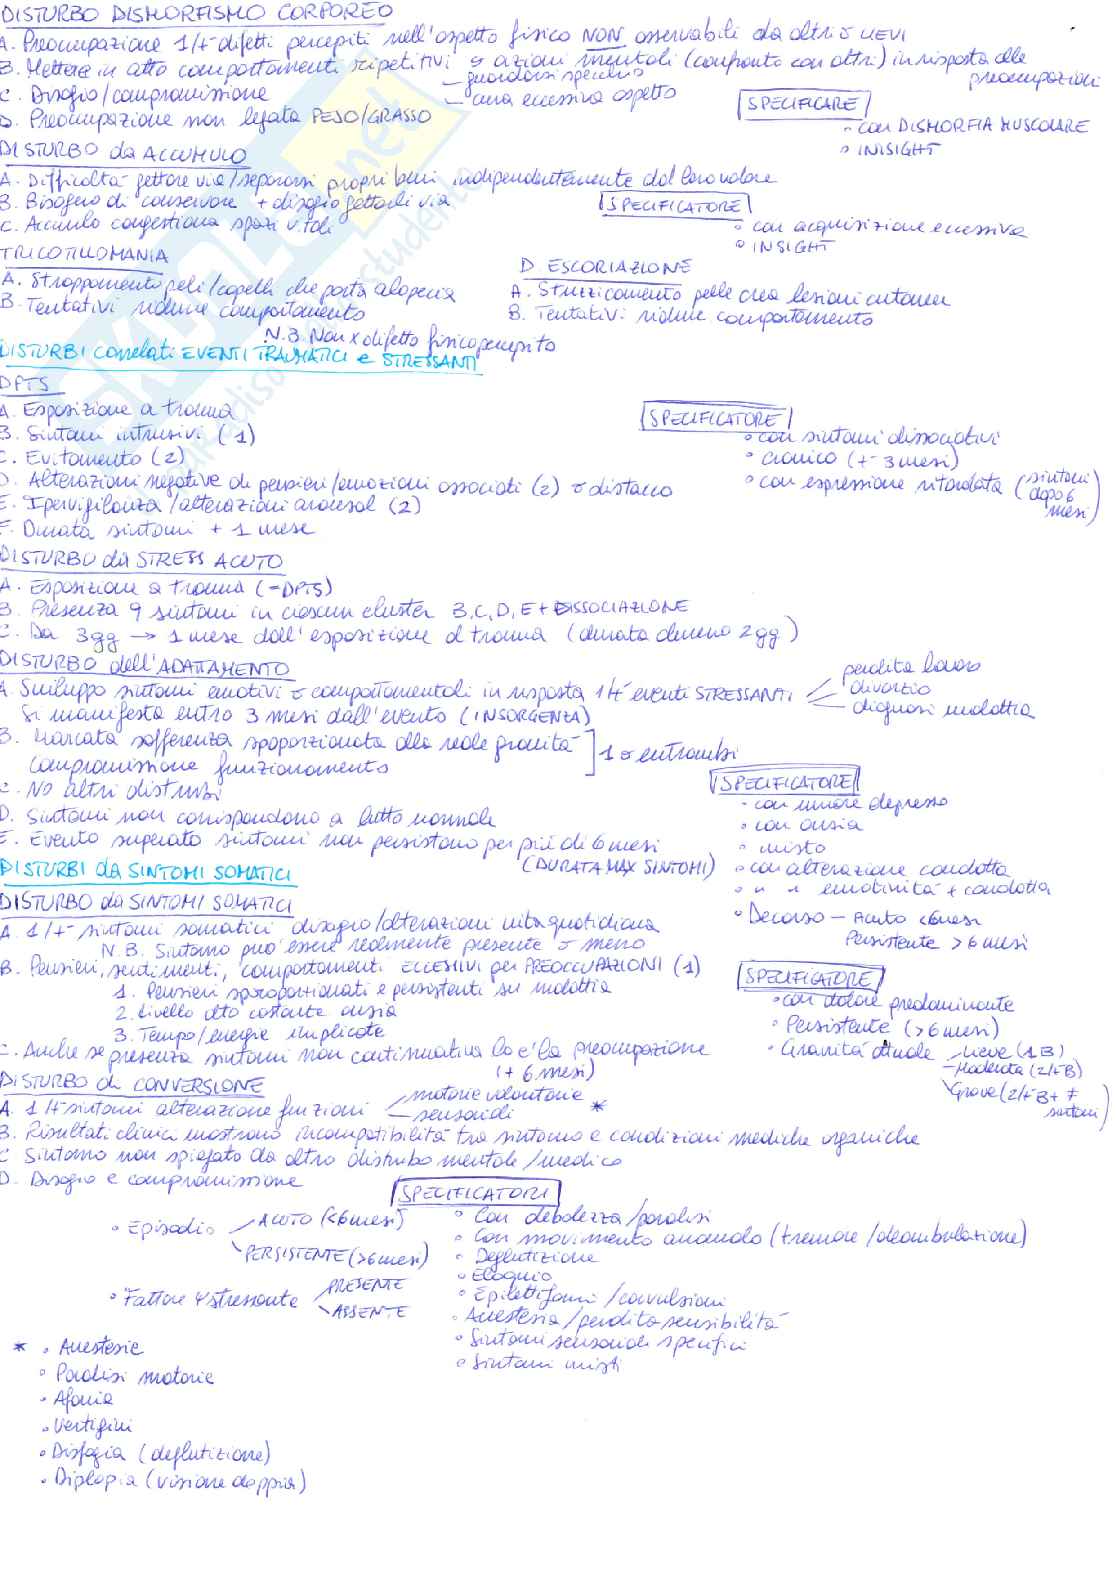 DISTURBO DISMORFISMO CORPOREO
A. Preoccupazione 1/+ difetti percepiti nell'aspetto fisico NON osservabili da altri o LIEVI
B. Mettere in atto comportamenti ripetitivi o azioni mentali (confronto con altri) in risposta alle preoccupazioni
– guardarsi specchio
– cura eccessiva aspetto
C. Disagio/compromissione
D. Preoccupazione non legata PESO/GRASSO
SPECIFICARE
◦ con DISMORFIA MUSCOLARE
◦ INISIGHT
DISTURBO da ACCUMULO
A. Difficoltà gettare via/separarsi propri beni indipendentemente dal loro valore
B. Bisogno di conservare + disagio gettarli via
C. Accumulo congestiona spazi vitali
SPECIFICATORE
◦ con acquisizione eccessiva
◦ INSIGHT
TRICOTILLOMANIA
A. Strappamento peli/capelli che porta alopecia
B. Tentativi ridurre comportamento
D ESCORIAZIONE
A. Stuzzicamento pelle crea lesioni cutanee
B. Tentativi ridurre comportamento
N.B. Non x difetto fisico percepito
DISTURBI correlati EVENTI TRAUMATICI e STRESSANTI
DPTS
A. Esposizione a trauma
B. Sintomi intrusivi (1)
C. Evitamento (2)
D. Alterazioni negative di pensieri/emozioni associati (2) o distacco
E. Ipervigilanza/alterazioni arousal (2)
F. Durata sintomi + 1 mese
SPECIFICATORE
◦ con sintomi dissociativi
◦ cronico (+ 3 mesi)
◦ con espressione ritardata (sintomi dopo 6 mesi)
DISTURBO da STRESS ACUTO
A. Esposizione a trauma (=DPTS)
B. Presenza 9 sintomi in ciascun cluster B, C, D, E + DISSOCIAZIONE
C. Da 3gg → 1 mese dall'esposizione al trauma (durata almeno 2gg)
DISTURBO dell'ADATTAMENTO
A. Sviluppo sintomi emotivi o comportamentali in risposta 1/+ eventi STRESSANTI
perdita lavoro
– divorzio
– diagnosi malattia
Si manifesta entro 3 mesi dall'evento (INSORGENZA)
B. Marcata sofferenza spoporzionata alla reale gravità
compromissione funzionamento
1 o entrambi
C. No altri disturbi
D. Sintomi non corrispondono a lutto normale
E. Evento superato sintomi non persistono per più di 6 mesi
(DURATA MAX SINTOMI)
SPECIFICATORE
◦ con umore depresso
◦ con ansia
◦ misto
◦ con alterazione condotta
◦ " " emotività + condotta
◦ Decorso – Acuto <6mesi
Persistente >6 mesi
DISTURBI da SINTOMI SOMATICI
DISTURBO da SINTOMI SOMATICI
A. 1/+ sintomi somatici disagio/alterazioni vita quotidiana
N.B. Sintomo può essere realmente presente o meno
B. Pensieri, sentimenti, comportamenti ECCESSIVI per PREOCCUPAZIONI (1)
1. Pensieri sproporzionati e persistenti su malattia
2. Livello alto costante ansia
3. Tempo/energie implicate
C. Anche se presenza sintomi non continuativa lo è la preoccupazione
(+ 6 mesi)
SPECIFICATORE
◦ con dolore predominante
◦ Persistente (>6 mesi)
◦ Gravità attuale – Lieve (1 B)
– Moderata (2/+B)
Grave (2/+B + ≠ sintomi)
DISTURBO di CONVERSIONE
A. 1/+ sintomi alterazione funzioni
motorie volontarie
– sensoriali *
B. Risultati clinici mostrano incompatibilità tra sintomo e condizioni mediche organiche
C Sintomo non spiegato da altro disturbo mentale/medico
D. Disagio e compromissione
◦ Episodio
ACUTO (<6mesi)
PERSISTENTE (>6mesi)
◦ Fattore Ψ stressante
PRESENTE
ASSENTE
SPECIFICATORI
◦ Con debolezza/paralisi
◦ Con movimento anomalo (tremore/deambulazione)
◦ Deglutizione
◦ Eloquio
◦ Epilettiformi/convulsioni
◦ Anestesia/perdita sensibilità
◦ Sintomi sensoriali specifici
◦ Sintomi misti
* ◦ Anestesie
◦ Paralisi motorie
◦ Afonia
◦ Vertigini
◦ Disfagia (deglutizione)
◦ Diplopia (visione doppia)